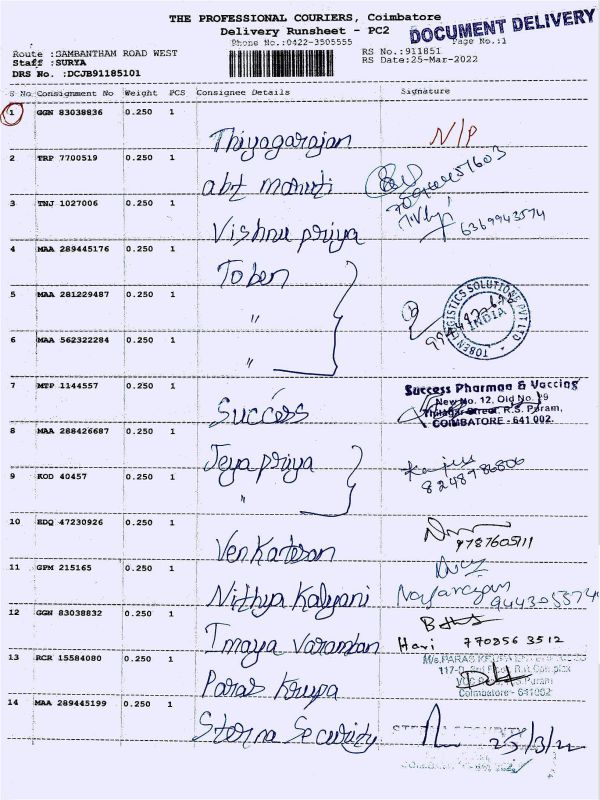 THE PROFESSIONAL COURIERS, Coimbatore
Delivery Runsheet - PC2
DOCUMENT DELIVERY
Phone No.:0422-3505555
Page No.:1
Route :SAMBANTHAM ROAD WEST
RS No.:911851
Staff :SURYA
RS Date:25-Mar-2022
DRS No. :DCJB91185101
S No Consignment No Weight PCS Consignee Details Signature
1 GGN 83038836 0.250 1
Thiyagarajan N/P
2 TRP 7700519 0.250 1
abt maruti
3 TNJ 1027006 0.250 1
Vishnu priya 6369943574
4 MAA 289445176 0.250 1
Toben
5 MAA 281229487 0.250 1
"
TOBEN LOGISTICS SOLUTIONS PVT LTD
INDIA
6 MAA 562322284 0.250 1
"
7 MTP 1144557 0.250 1
Success
Success Pharmaa & Vaccing
New No. 12, Old No. 29
Thilagar Street, R.S. Puram,
COIMBATORE - 641 002.
8 MAA 288426687 0.250 1
Jeya priya
8248786806
9 KOD 40457 0.250 1
"
10 EDQ 47230926 0.250 1
Venkatesan
9787605111
11 GPM 215165 0.250 1
Nithya Kalyani
Nagarajan
9443055740
12 GGN 83038832 0.250 1
Imaya Varamban Hari 770856 3512
13 RCR 15584080 0.250 1
Paras Krupa
Coimbatore - 641002
14 MAA 289445199 0.250 1
Sterna Security 25/3/22